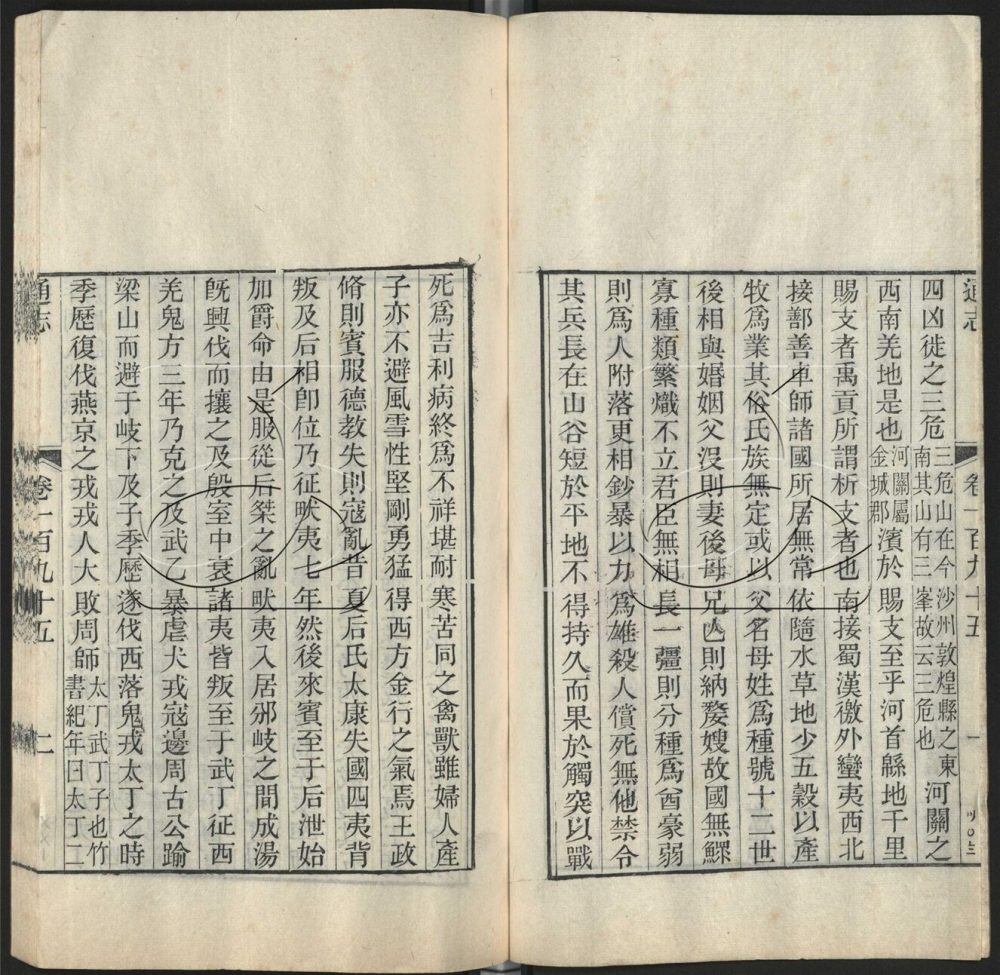 通志 卷一百九十五 一
四凶徙之三危三危山在今沙州敦煌縣之東南其山有三峯故云三危也河關之
西南羌地是也河關屬金城郡濱於賜支至乎河首緜地千里
賜支者禹貢所謂析支者也南接蜀漢徼外蠻夷西北
接鄯善車師諸國所居無常依隨水草地少五穀以產
牧爲業其俗氏族無定或以父名母姓爲種號十二世
後相與婚姻父沒則妻後母兄亾則納嫠嫂故國無鰥
寡種類繁熾不立君臣無相長一彊則分種爲酋豪弱
則爲人附落更相鈔暴以力爲雄殺人償死無他禁令
其兵長在山谷短於平地不得持久而果於觸突以戰
死爲吉利病終爲不祥堪耐寒苦同之禽獸雖婦人產
子亦不避風雪性堅剛勇猛得西方金行之氣焉王政
脩則賓服德教失則寇亂昔夏后氏太康失國四夷背
叛及后相卽位乃征畎夷七年然後來賓至于后泄始
加爵命由是服從后桀之亂畎夷入居邠岐之間成湯
旣興伐而攘之及殷室中衰諸夷皆叛至于武丁征西
羌鬼方三年乃克之及武乙暴虐犬戎寇邊周古公踰
梁山而避于岐下及子季歷遂伐西落鬼戎太丁之時
季歷復伐燕京之戎戎人大敗周師太丁武丁子也竹書紀年曰太丁二
通志 卷一百九十五 二